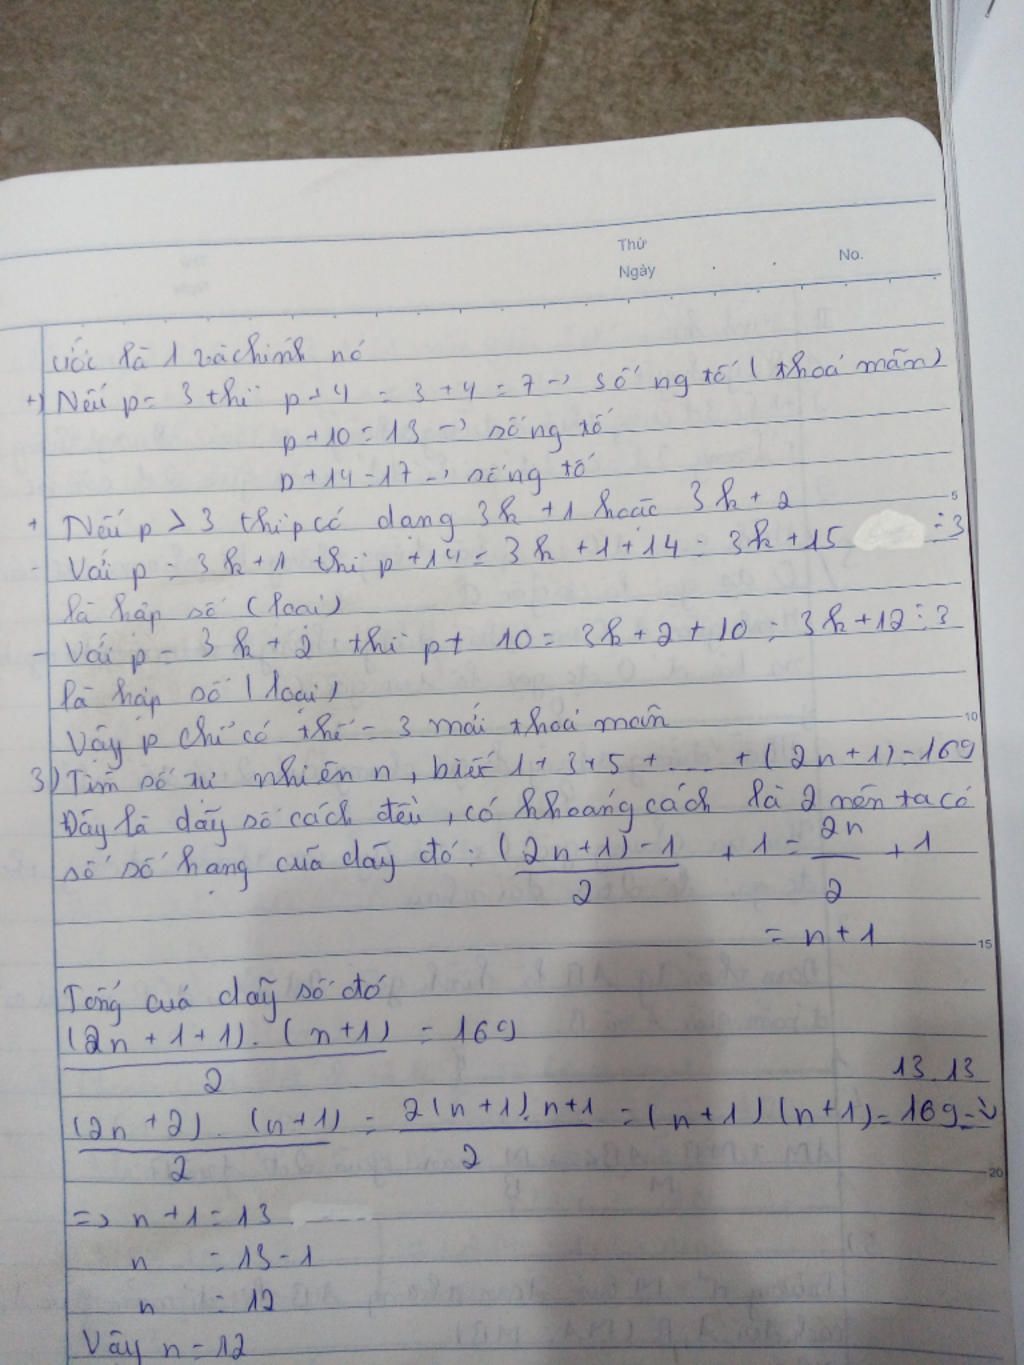 Thứ
Ngày
No.
ước là 1 và chính nó
+) Nếu p = 3 thì p + 4 = 3 + 4 = 7 → số ng tố (thoả mãn)
p + 10 = 13 → số ng tố
p + 14 = 17 → số ng tố
5
+ Nếu p > 3 thì p có dạng 3k + 1 hoặc 3k + 2
- Với p = 3k + 1 thì p + 14 = 3k + 1 + 14 = 3k + 15 ⋮ 3
là hợp số (loại)
- Với p = 3k + 2 thì p + 10 = 3k + 2 + 10 = 3k + 12 ⋮ 3
là hợp số (loại)
Vậy p chỉ có thể = 3 mới thoả mãn
10
3) Tìm số tự nhiên n, biết 1 + 3 + 5 + ... + (2n + 1) = 169
Đây là dãy số cách đều, có khoảng cách là 2 nên ta có
số số hạng của dãy đó: ((2n + 1) - 1)/2 + 1 = 2n/2 + 1
= n + 1
15
Tổng của dãy số đó
(2n + 1 + 1) . (n + 1)/2 = 169
13.13
(2n + 2) . (n + 1)/2 = 2(n + 1).n + 1/2 = (n + 1)(n + 1) = 169 =
20
=> n + 1 = 13
n = 13 - 1
n = 12
Vậy n = 12